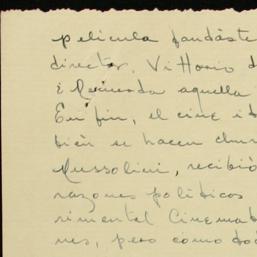 película fandáste
director. Vittorio d
¿ Recuerda aquella
En fin, el cine it
bién se hacen chur
Mussolini, recibió
razones políticos
rimental Cinemat
nes, pero como do